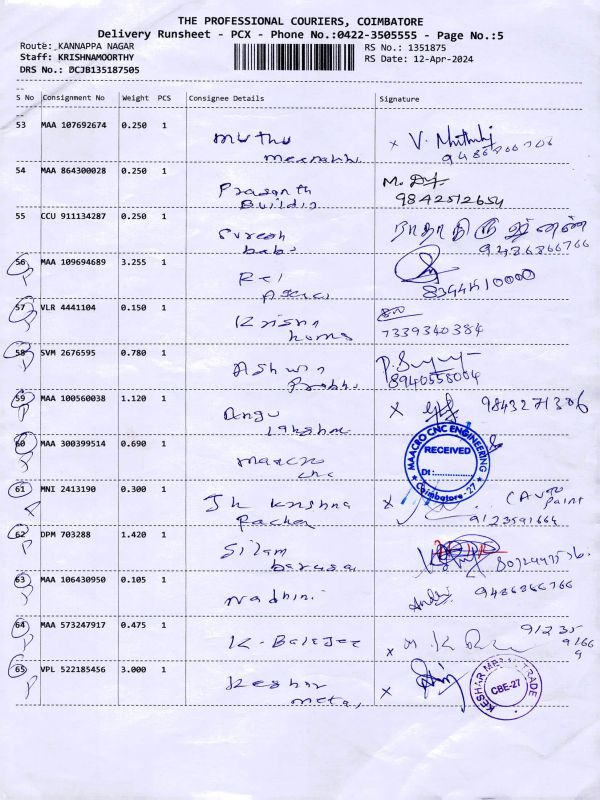 THE PROFESSIONAL COURIERS, COIMBATORE
Delivery Runsheet - PCX - Phone No.:0422-3505555 - Page No.:5
Route: KANNAPPA NAGAR
RS No.: 1351875
Staff: KRISHNAMOORTHY
RS Date: 12-Apr-2024
DRS No.: DCJB135187505
S No Consignment No Weight PCS Consignee Details Signature
53 MAA 107692674 0.250 1 Muthu
54 MAA 864300028 0.250 1 Prasanth
Buildin
9842512654
55 CCU 911134287 0.250 1 Suresh
babu
9486866766
56 MAA 109694689 3.255 1
8344410000
57 VLR 4441104 0.150 1 Krishn
homs
7339340384
58 SVM 2676595 0.780 1 Ashwin
Prabhu
8940558004
59 MAA 100560038 1.120 1 Angu
lakshmi
9843271306
60 MAA 300399514 0.690 1 maacro
cnc
MAACRO CNC ENGINEERING
RECEIVED
Dt:
Coimbatore - 27
61 MNI 2413190 0.300 1 Jk Krishna
62 DPM 703288 1.420 1 Silam
63 MAA 106430950 0.105 1 Nadhini
9486866766
64 MAA 573247917 0.475 1 K. Balajee
65 VPL 522185456 3.000 1 Keshar
metal
CBE-27